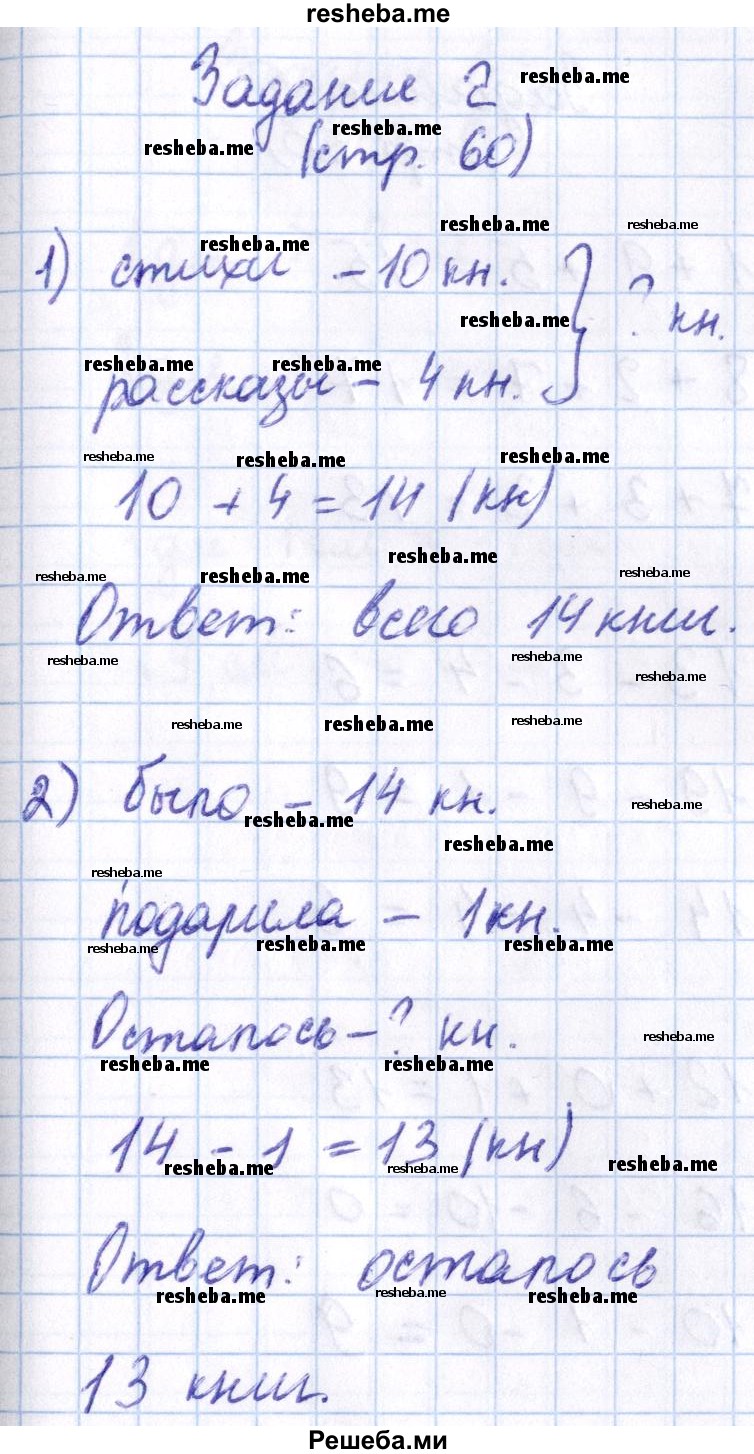 resheba.me
Задание 2
(стр. 60)
1) стихи – 10 кн. } ? кн.
рассказы – 4 кн.
10 + 4 = 14 (кн)
Ответ: всего 14 книг.
2) было – 14 кн.
подарила – 1 кн.
Осталось – ? кн.
14 - 1 = 13 (кн)
Ответ: осталось
13 книг.
Решеба.ми